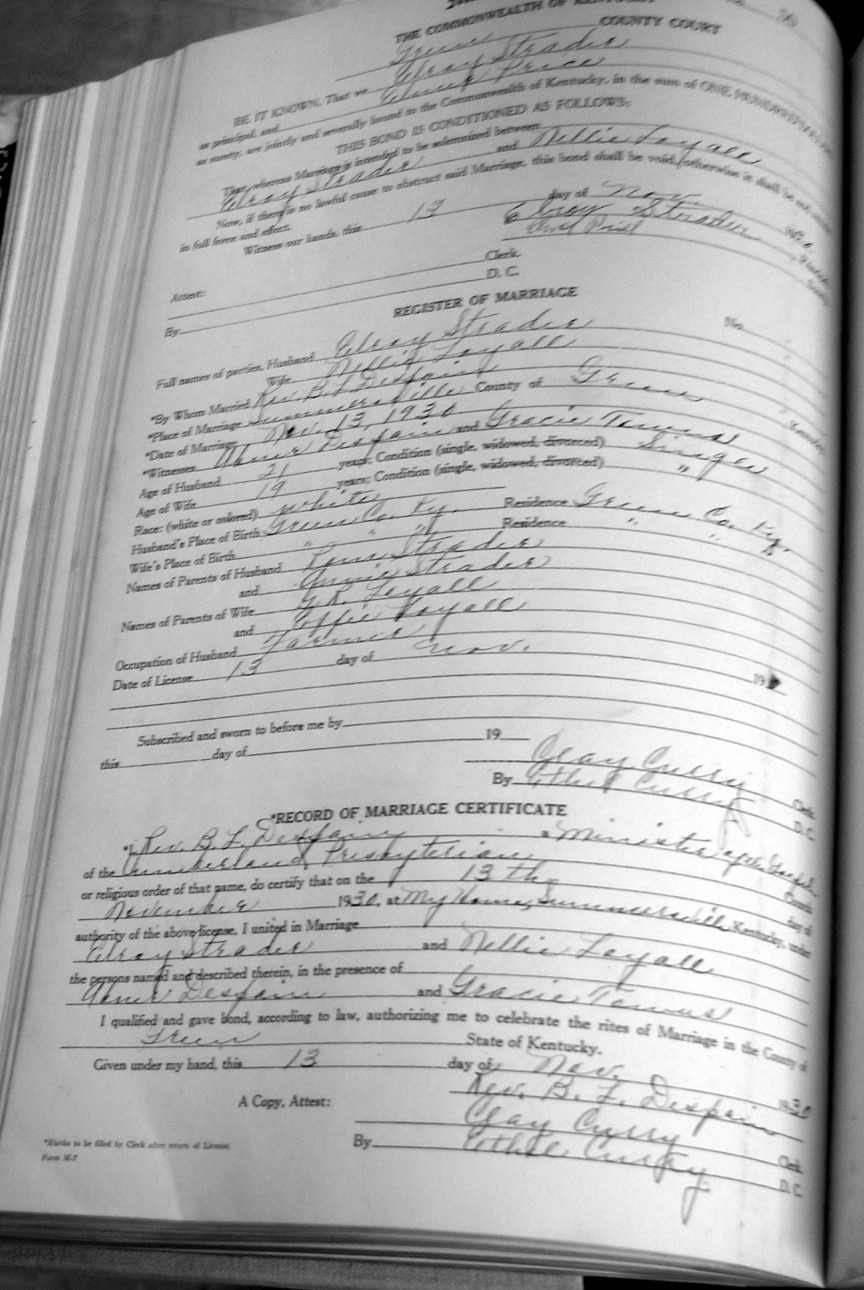 THE COMMONWEALTH OF KENTUCKY
Green COUNTY COURT
BE IT KNOWN, That we Elroy Strader
as principal, and Elmer Price
as surety, are jointly and severally bound to the Commonwealth of Kentucky, in the sum of ONE HUNDRED
THIS BOND IS CONDITIONED AS FOLLOWS:
That, whereas Marriage is intended to be solemnized between
Elroy Strader and Nellie Loyall
Now, if there is no lawful cause to obstruct said Marriage, this bond shall be void, otherwise it shall be
in full force and effect.
Witness our hands, this 13 day of Nov
Elroy Strader
Price
Attest: Clerk.
By D. C.
REGISTER OF MARRIAGE
No.
Full names of parties, Husband Elroy Strader
Wife Nellie Loyall
*By Whom Married Rev. B. L. Despain
*Place of Marriage Summersville County of Green Kentucky
*Date of Marriage Nov. 13, 1930
*Witnesses Abner Despain and Gracie Towns
Age of Husband 21 years; Condition (single, widowed, divorced) Single
Age of Wife 19 years; Condition (single, widowed, divorced) "
Race: (white or colored) white
Husband's Place of Birth Green Co. Ky. Residence Green Co. Ky.
Wife's Place of Birth " " " Residence " " "
Names of Parents of Husband Strader
and Annie Strader
Names of Parents of Wife G. R. Loyall
and Effie Loyall
Occupation of Husband Farmer
Date of License 13 day of Nov. 19
Subscribed and sworn to before me by
this day of 19
Clay Curry Clerk
By Ethel Curry D. C.
*RECORD OF MARRIAGE CERTIFICATE
*I, Rev. B. L. Despain a Minister of the Gospel
of the Cumberland Presbyterian Church
or religious order of that name, do certify that on the 13th day of
November 1930, at My Home, Summersville Kentucky, under
authority of the above license, I united in Marriage
Elroy Strader and Nellie Loyall
the persons named and described therein, in the presence of
Abner Despain and Gracie Towns
I qualified and gave bond, according to law, authorizing me to celebrate the rites of Marriage in the County of
Green State of Kentucky.
Given under my hand, this 13 day of Nov. 1930
Rev. B. L. Despain
A Copy, Attest: Clay Curry Clerk
By Ethel Curry D. C.
*Blanks to be filled by Clerk after return of License
Form M-7